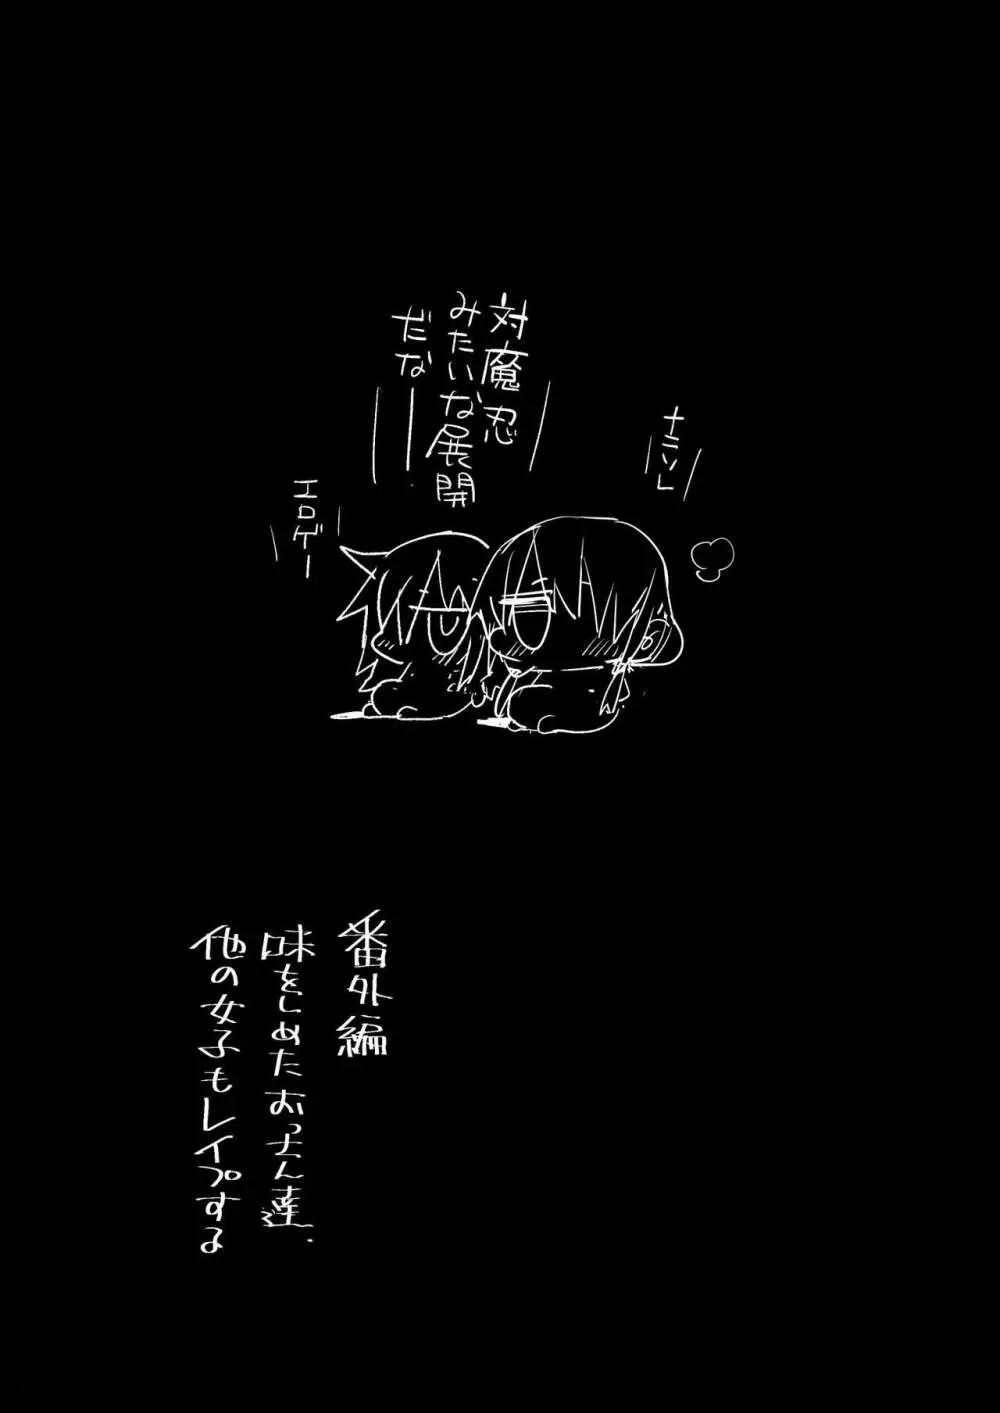 対魔忍
みたいな展開
だなーー
ナニソレ
エロゲー
番外編
味をしめたおっさん達、
他の女子もレイプする